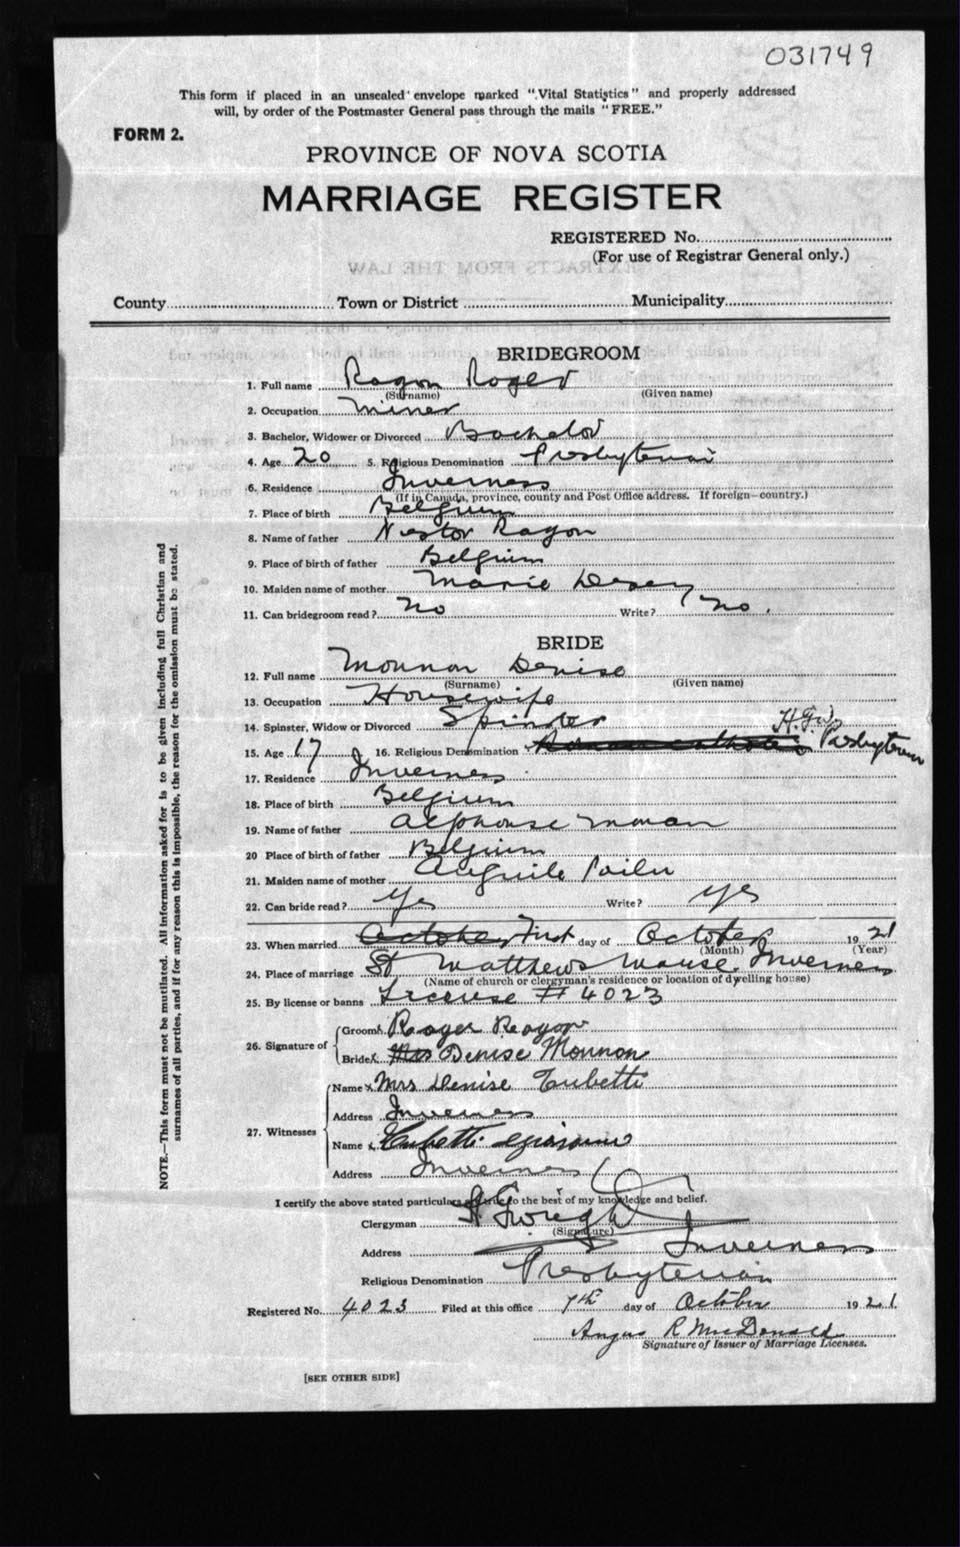 031749
This form if placed in an unsealed envelope marked "Vital Statistics" and properly addressed
will, by order of the Postmaster General pass through the mails "FREE."
FORM 2.
PROVINCE OF NOVA SCOTIA
MARRIAGE REGISTER
REGISTERED No.
(For use of Registrar General only.)
EXTRACTS FROM THE LAW
County Town or District Municipality
BRIDEGROOM
1. Full name Ragon Roger
(Surname) (Given name)
2. Occupation Miner
3. Bachelor, Widower or Divorced Bachelor
4. Age 20 5. Religious Denomination Presbyterian
6. Residence Inverness
(If in Canada, province, county and Post Office address. If foreign—country.)
7. Place of birth Belgium
8. Name of father Nestor Ragon
9. Place of birth of father Belgium
10. Maiden name of mother Marie
11. Can bridegroom read? no Write? no.
BRIDE
12. Full name Mounon Denise
(Surname) (Given name)
13. Occupation Housewife
14. Spinster, Widow or Divorced Spinster
15. Age 17 16. Religious Denomination Roman catholic Presbyterian
17. Residence Inverness
18. Place of birth Belgium
19. Name of father Alphonse
20 Place of birth of father Belgium
21. Maiden name of mother
22. Can bride read? yes Write? yes
23. When married October First day of October 1921
(Month) (Year)
24. Place of marriage St Matthews Manse Inverness
(Name of church or clergyman's residence or location of dwelling house)
25. By license or banns License # 4023
26. Signature of Groom Roger Ragon
Bride Mrs Denise Mounon
27. Witnesses Name x Mrs Denise Tubetti
Address Inverness
Name x Tubetti
Address Inverness
I certify the above stated particulars are true to the best of my knowledge and belief.
Clergyman
(Signature)
Address Inverness
Religious Denomination Presbyterian
Registered No. 4023 Filed at this office 7th day of October 1921
Angus R McDonald
Signature of Issuer of Marriage Licenses.
[SEE OTHER SIDE]
NOTE.—This form must not be mutilated. All information asked for is to be given including full Christian and
surnames of all parties, and if for any reason this is impossible, the reason for the omission must be stated.